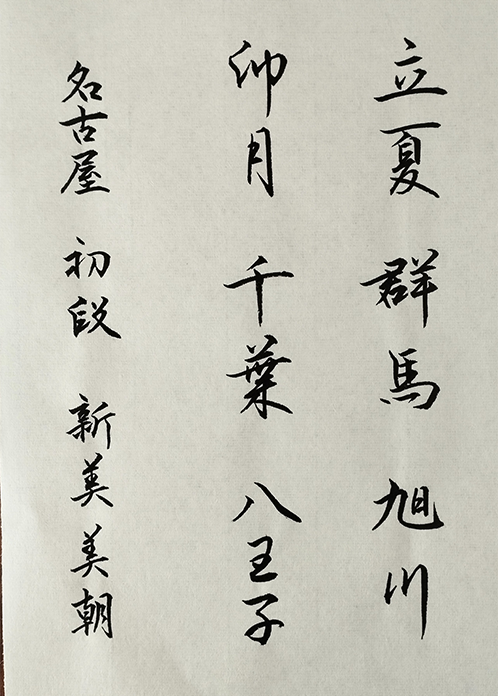 立夏 群馬 旭川
卯月 千葉 八王子
名古屋 初段 新美美朝